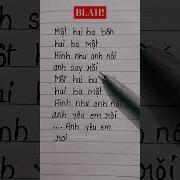 BLAH!
Một hai ba bốn
hai ba một
Hình như anh nói
anh say rồi
Một hai ba
hai ba một
Hình như anh nói
anh yêu em rồi
.... Anh yêu em
rồi